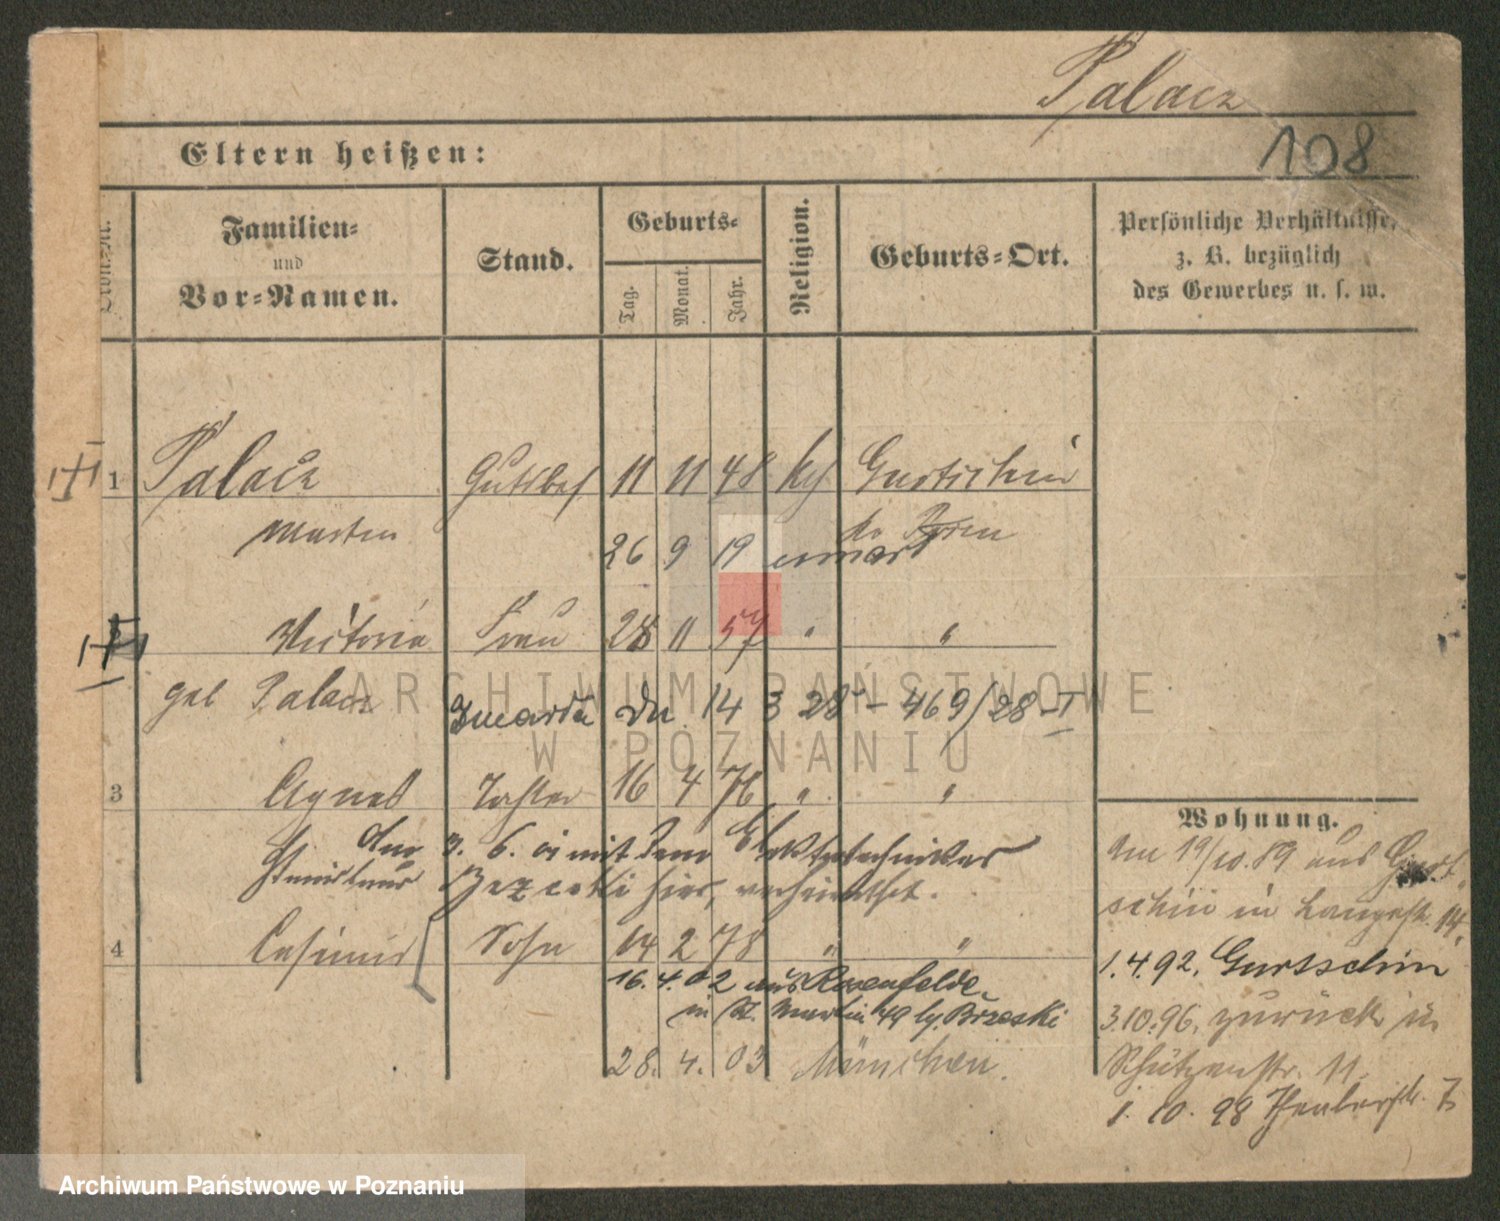 Palacz
108
Eltern heißen:
Familien=
und
Vor=Namen.
Stand.
Geburts=
Tag.
Monat.
Jahr.
Religion.
Geburts=Ort.
Persönliche Verhältnisse,
z. B. bezüglich
des Gewerbes u. s. w.
1 Palacz Gutsbes 11 11 48 kth Gurtschin
Martin Kr Posen
26 9 19 umarł
Victoria Frau 28 11 57 " "
geb Palacz zmarła dn 14 3 28 - 469/28 I
3 Agnes Tochter 16 4 76 " "
Am 3. 6. 01 mit dem Elektrotechniker
hier, verheirathet.
4 Casimir Sohn 14 2 78 " "
16. 4. 02 aus Rosenfelde
in St. Martin 49 bg. Brzeski
28. 4. 03 München.
Wohnung.
Am 19/10.89 aus Gurt
schin in Langestr. 14.
1.4.92. Gurtschin
3.10.96. zurück in
Schützenstr. 11.
1. 10. 98 7
ARCHIWUM PAŃSTWOWE
W POZNANIU
Archiwum Państwowe w Poznaniu